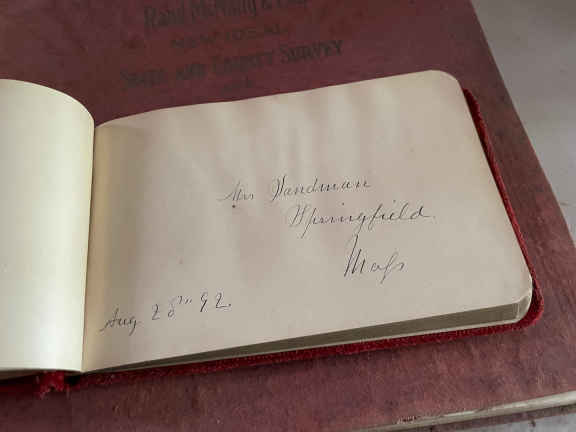 Rand McNally & Co's
STATE AND COUNTY SURVEY
Mrs Sandman
Springfield.
Mass
Aug 28th 92.